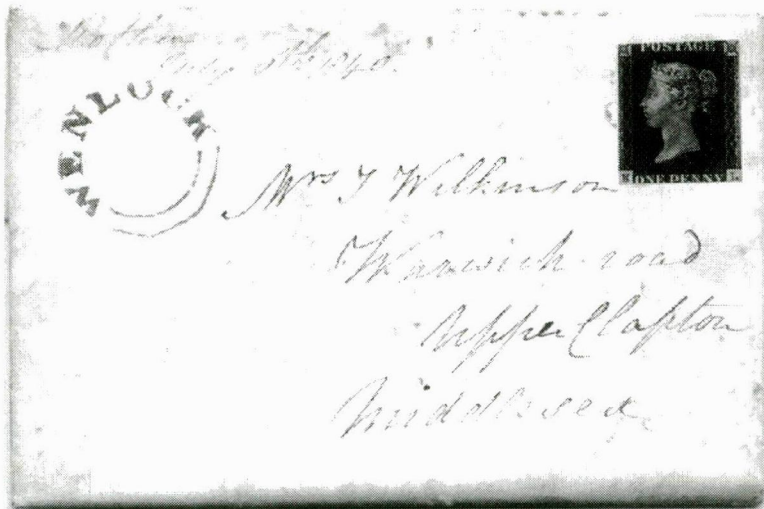 WENLOCK
POSTAGE
ONE PENNY
Mrs J Wilkinson
Warwick road
Upper Clapton
Middlesex